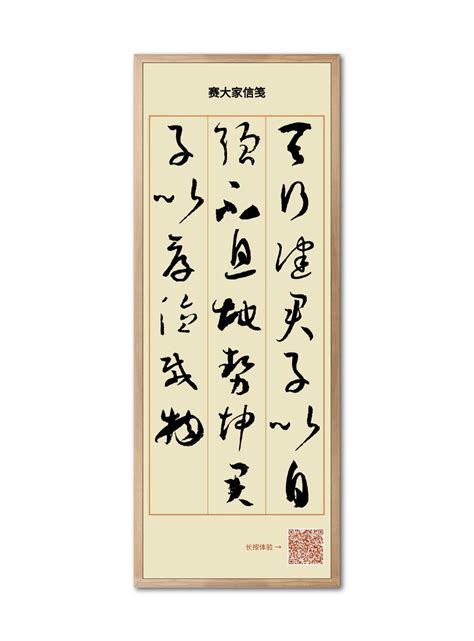 赛大家信笺
天行健君子以自
强不息地势坤君
子以厚德载物
长按体验→